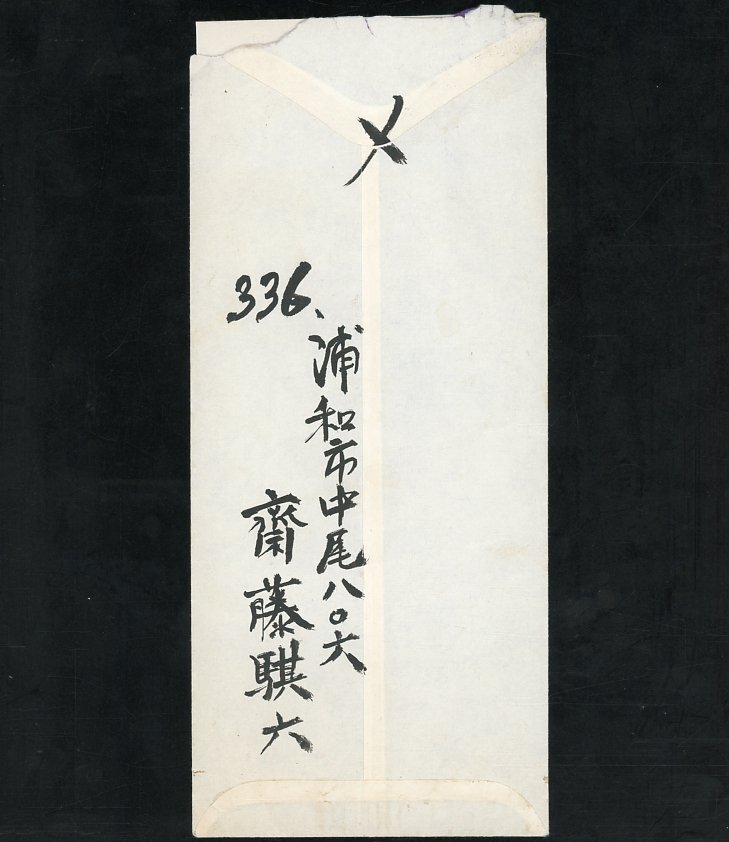 〆
336、
浦和市中尾八〇六
齋藤騏六